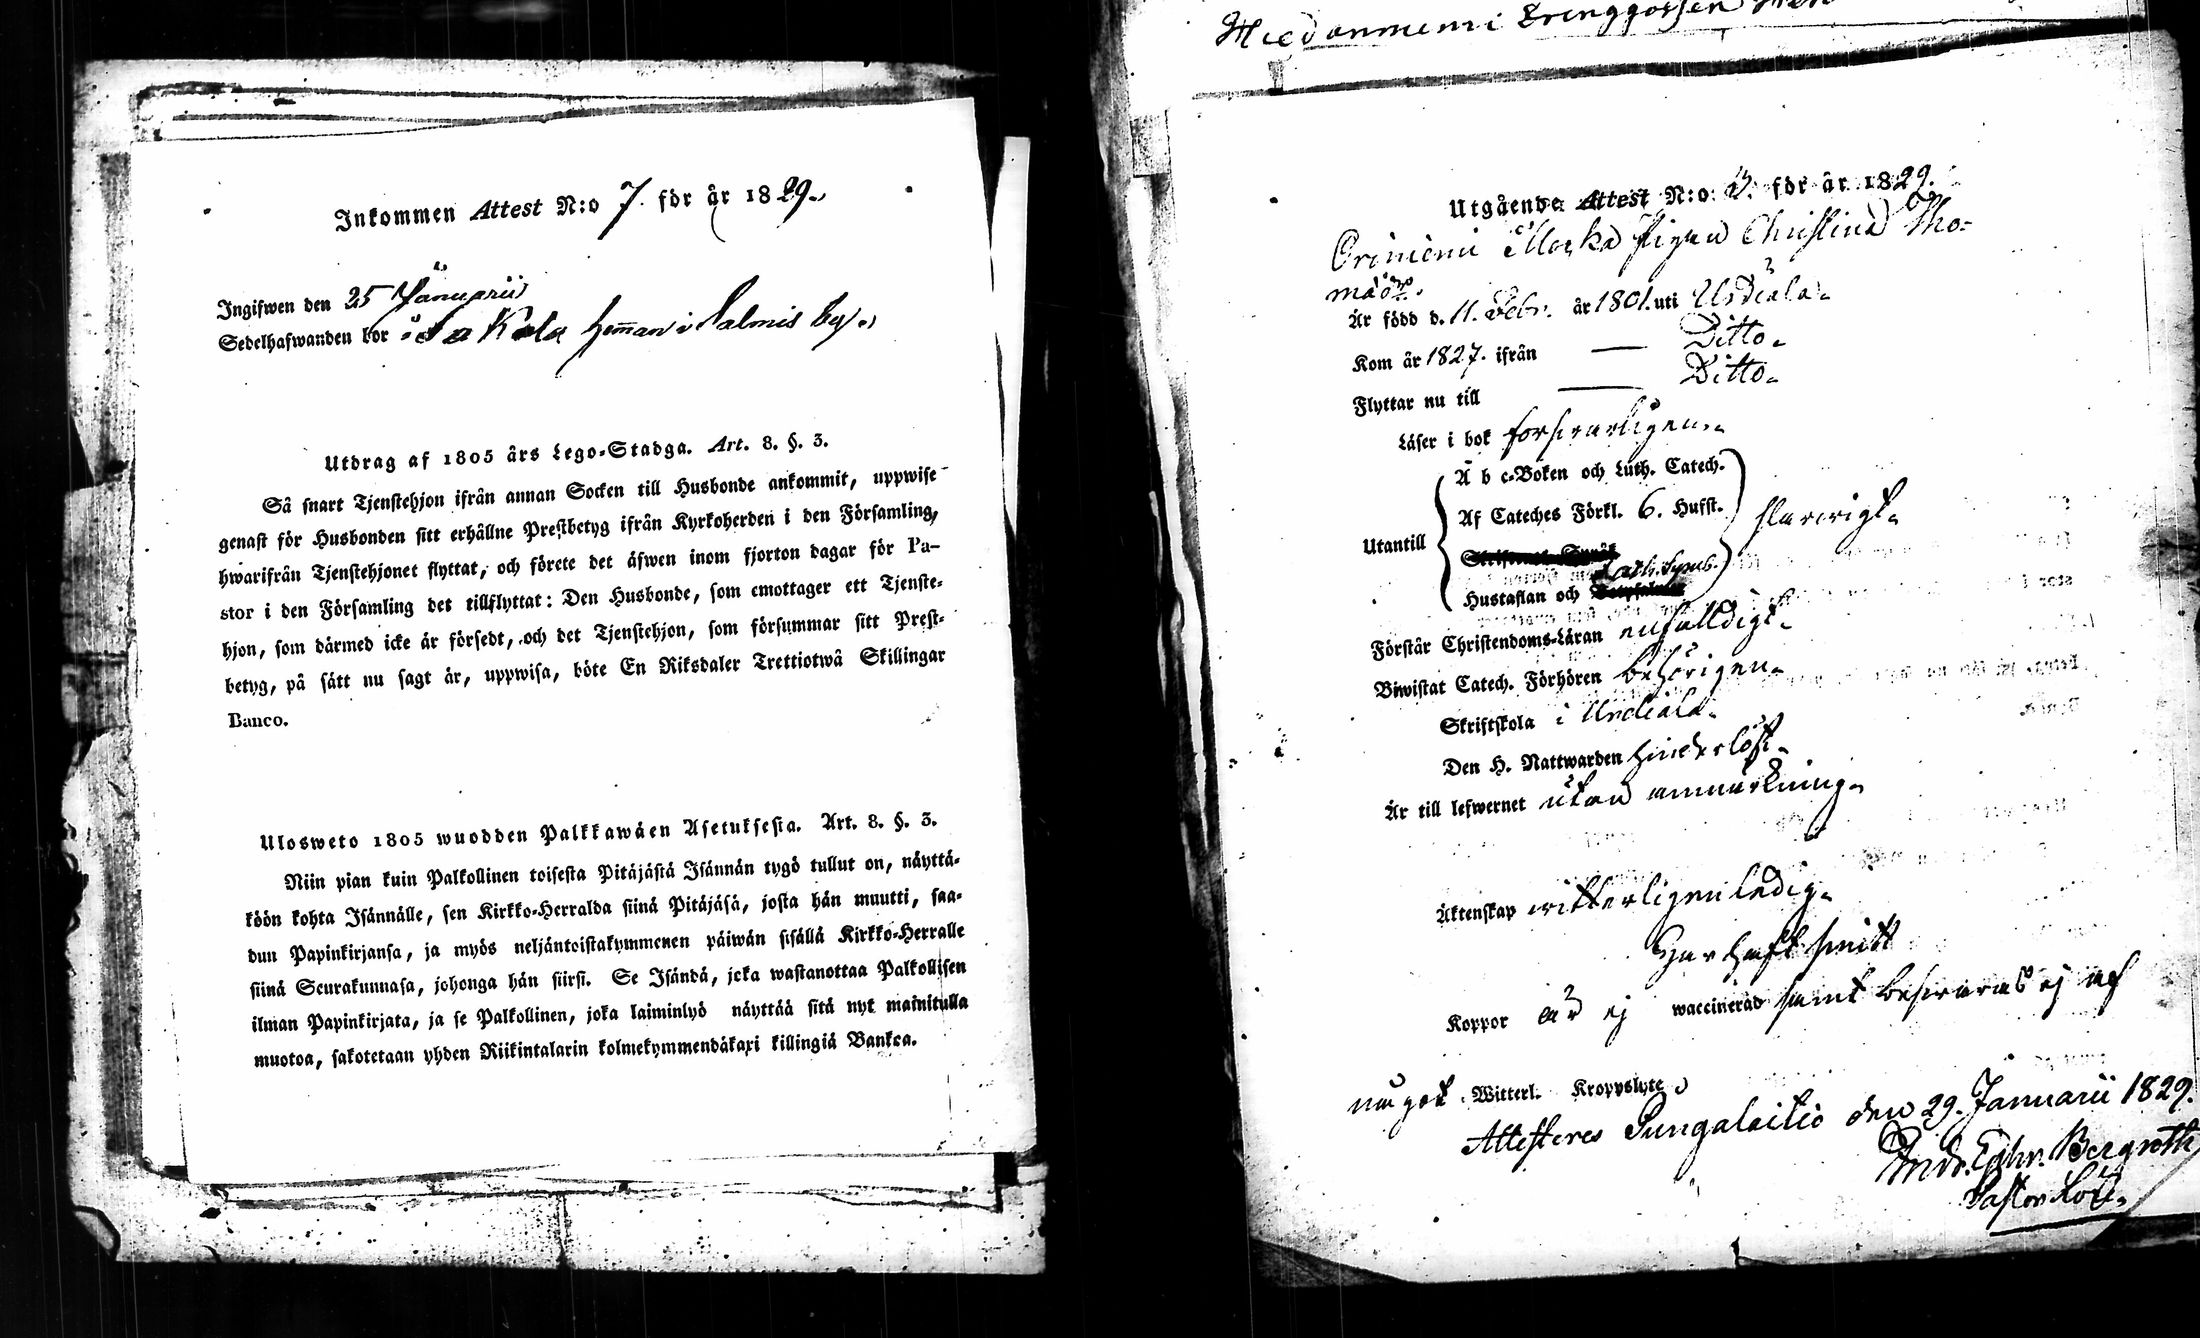 Inkommen Attest N:o 7. för år 1829.
Ingifwen den 25 Januarii
Sedelhafwanden bor å Jakola heman i Salmis by.
Utdrag af 1805 års Lego-Stadga. Art. 8. §. 3.
Så snart Tjenstehjon ifrån annan Socken till Husbonde ankommit, uppwise
genast för Husbonden sitt erhållne Prestbetyg ifrån Kyrkoherden i den Församling,
hwarifrån Tjenstehjonet flyttat, och förete det äfwen inom fjorton dagar för Pa-
stor i den Församling det tillflyttat: Den Husbonde, som emottager ett Tjenste-
hjon, som därmed icke är försedt, och det Tjenstehjon, som försummar sitt Prest-
betyg, på sätt nu sagt är, uppwisa, böte En Riksdaler Trettiotwå Skillingar
Banco.
Ulosweto 1805 wuodden Palkkawäen Asetuksesta. Art. 8. §. 3.
Niin pian kuin Palkollinen toisesta Pitäjästä Isännän tygö tullut on, näyttä-
köön kohta Isännälle, sen Kirkko-Herralda siinä Pitäjäsä, josta hän muutti, saa-
dun Papinkirjansa, ja myös neljäntoistakymmenen päiwän sisällä Kirkko-Herralle
siinä Seurakunnasa, johonga hän siirsi. Se Isändä, joka wastanottaa Palkollisen
ilman Papinkirjata, ja se Palkollinen, joka laiminlyö näyttää sitä nyt mainitulla
muotoa, sakotetaan yhden Riikintalarin kolmekymmendäkaxi killingiä Bankca.
Utgående Attest N:o för år 1829.
Pigan Christina Tho-
mäd:r
Är född d. 11. Febr. år 1801. uti Urdiala.
Kom år 1827. ifrån — Ditto.
Flyttar nu till — Ditto.
Läser i bok forsvarligen.
A b c-Boken och Luth. Catech.
Af Cateches Förkl. 6. Hufst.
Utantill
Hustaflan och Ath. Symb.
Förstår Christendoms-Läran enfalldigt.
Biwistat Catech. Förhören behörigen.
Skriftskola i Urdiala.
Den H. Nattwarden hinderlöst.
Är till lefwernet utan anmärkning.
Äktenskap witterligen ledig.
Har haft smitt
Koppor är ej waccinerad samt besväras ej af
något Witterl. Kroppslyte
Attesteres Pungalaitio den 29. Januarii 1829.
And. Ephr. Bergroth